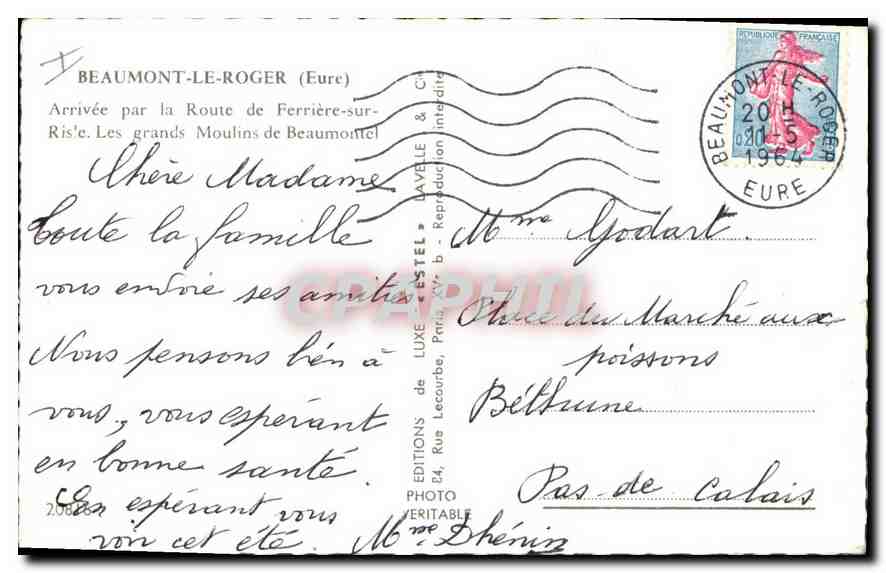 BEAUMONT-LE-ROGER (Eure)
Arrivée par la Route de Ferrière-sur-
Risle. Les grands Moulins de Beaumontel
Chère Madame
Toute la famille
vous envoie ses amitiés
Nous pensons bien à
vous, vous espérant
en bonne santé
En espérant vous
voir cet été. Mme Dhénin
EDITIONS de LUXE « ESTEL » LAVELLE & Cie
84, Rue Lecourbe, Paris XVe b - Reproduction interdite
PHOTO
VERITABLE
REPUBLIQUE FRANÇAISE
0,20
BEAUMONT-LE-ROGER
20 H
11-5
1964
EURE
Mme Godart.
Place du Marché aux
poissons
Béthune
Pas-de-Calais
CPAPHIL